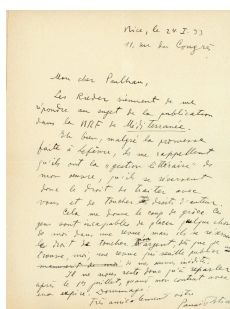 Nice, le 24. I. 33
11, rue du Congrès
Mon cher Paulhan,
Les Rieder viennent de me
répondre au sujet de la publication
dans la NRF de Méditerranée.
Eh bien, malgré la promesse
faite à Lefèvre, ils me rappellent
qu'ils ont la "gestion littéraire" de
mon œuvre, qu'ils se réservent
donc le droit de traiter avec
vous et de toucher droits d'auteur.
Cela me donne le coup de grâce. Ces
gens sont incapables de placer quelque chose
de moi dans une revue, mais ils se réservent
le droit de toucher l'argent, dès que je
trouve, moi, une revue qui veuille publier
de mes inédits.
Il ne nous reste donc qu'à reparler
après le 1er juillet, quand mon contrat avec
eux expire. Dommage!
Très amicalement vôtre
Panait Istrati